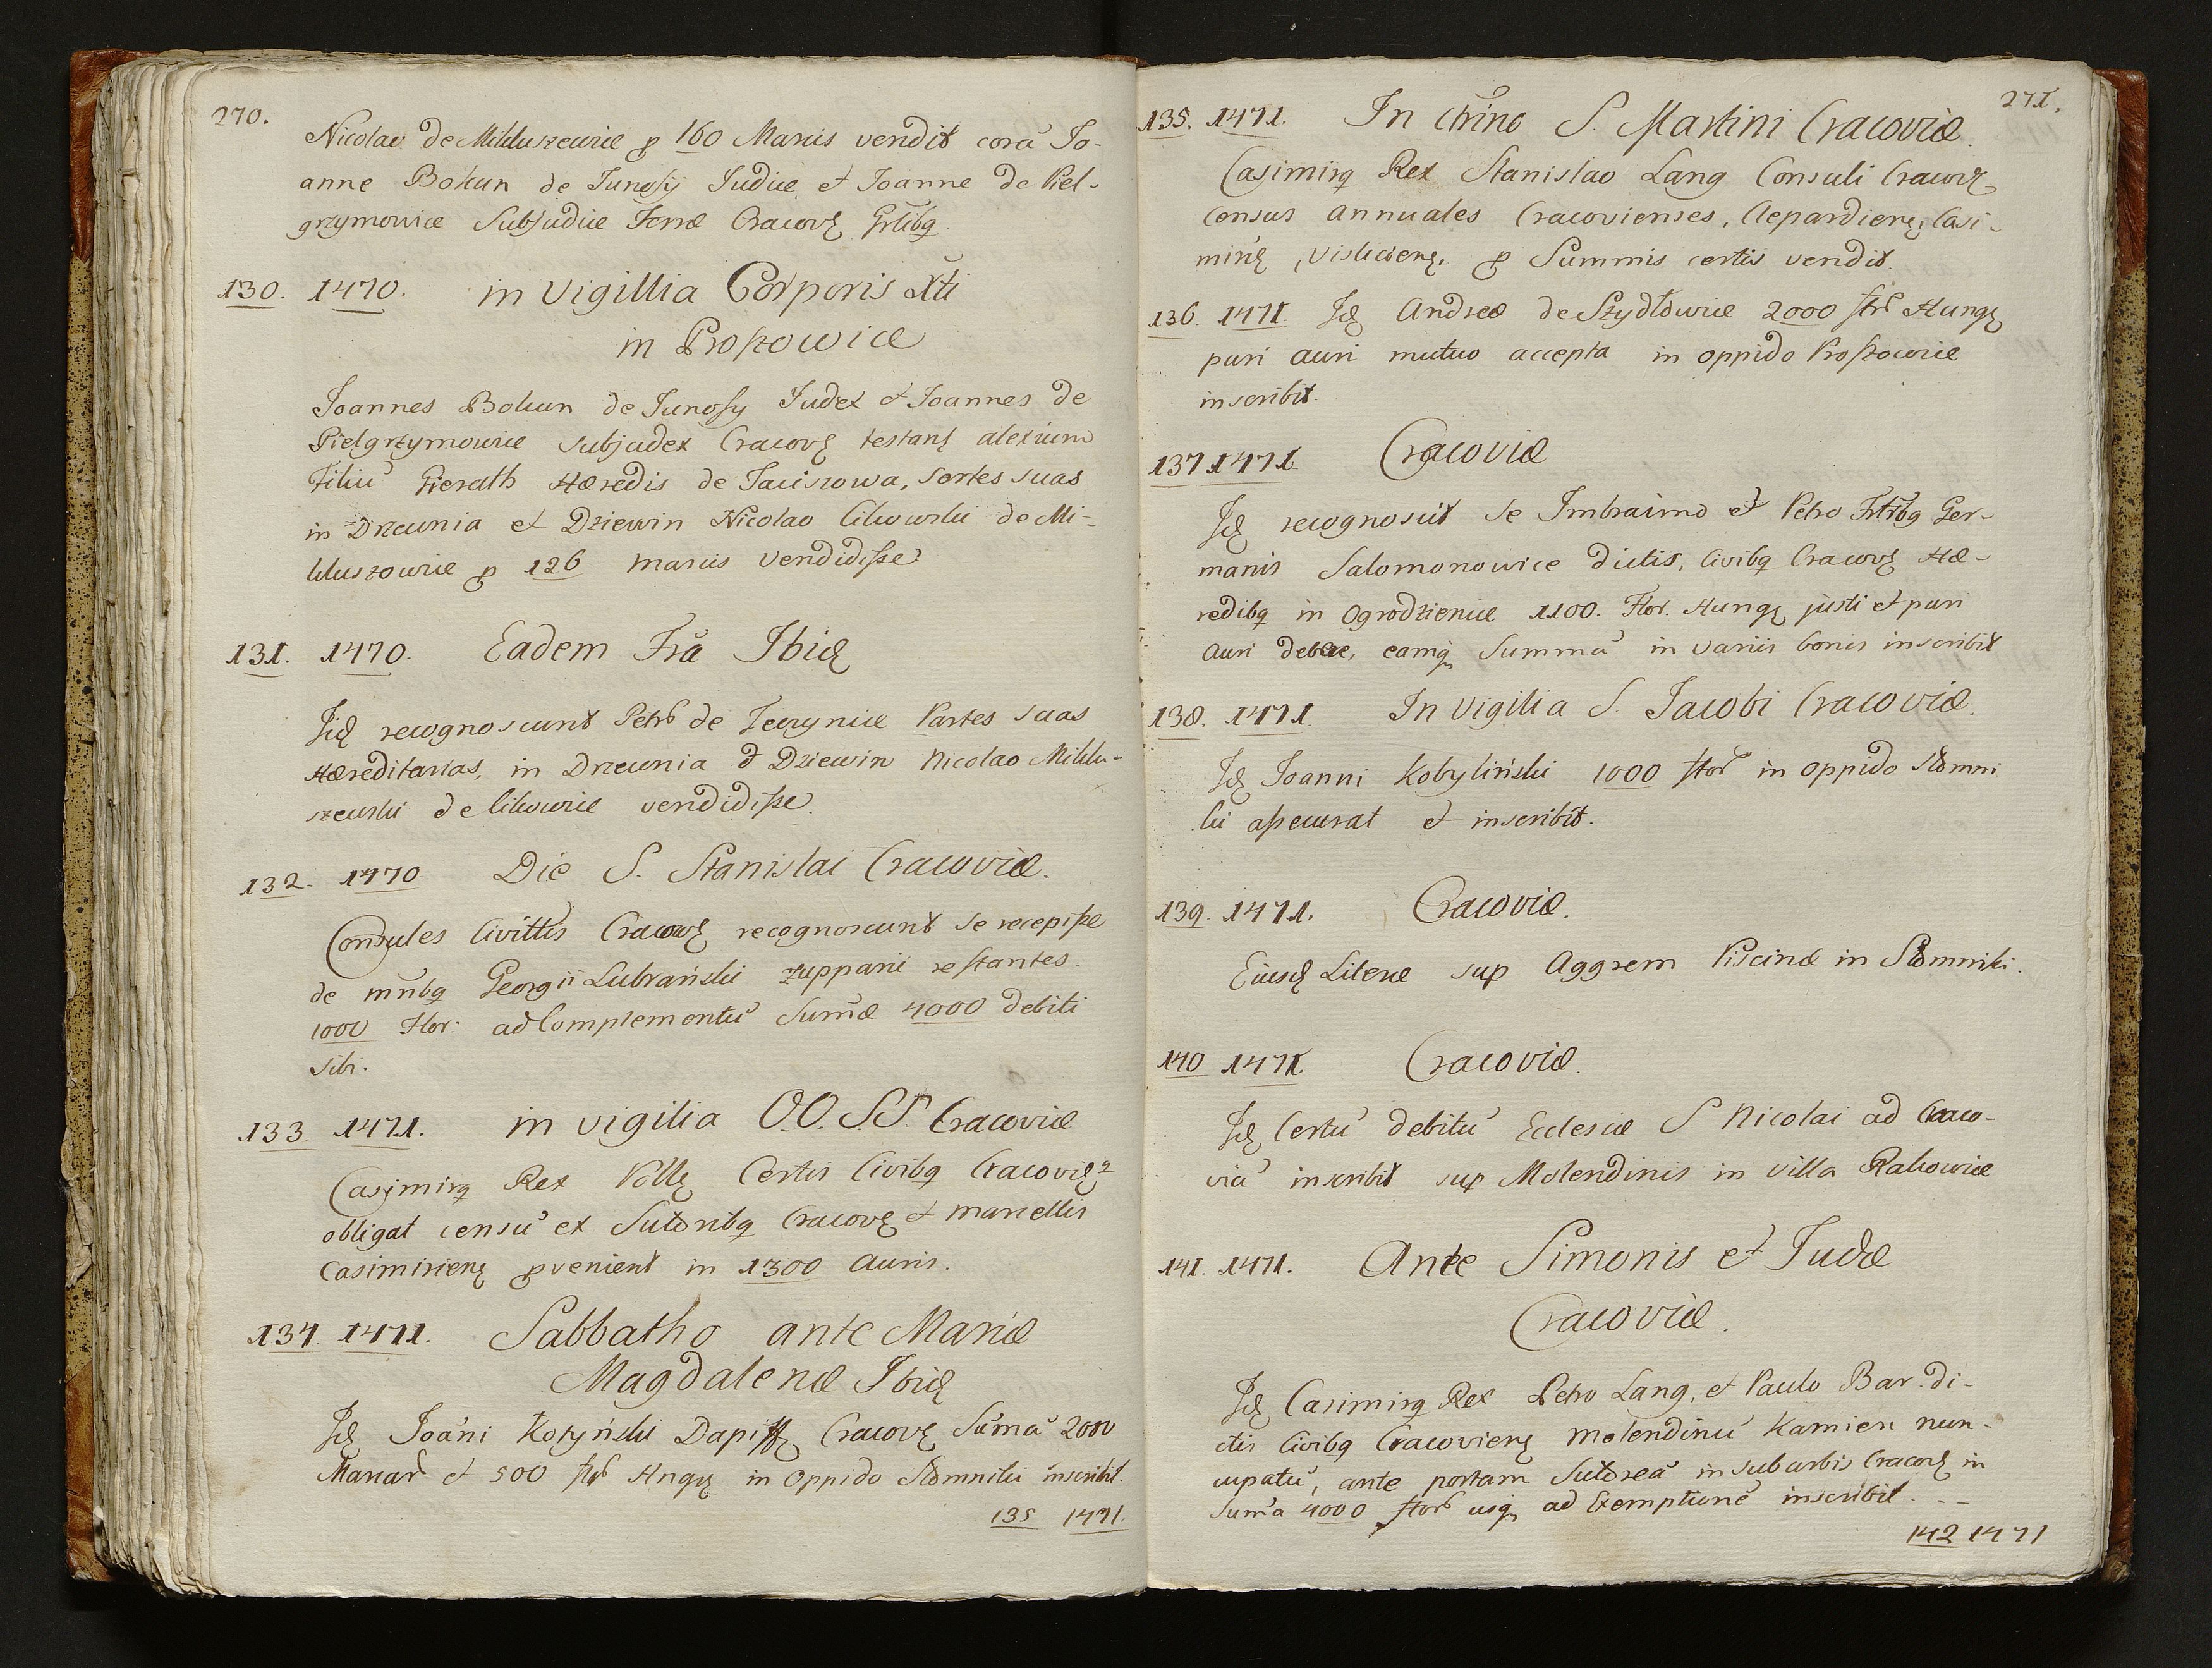 270.
Nicolao de Mikluszewice ꝑ 160 Marcis vendit corā Jo-
anne Bohun de Junoszy Judice et Joanne de Piel-
grzymowice Subjudice Terræ Cracovę Grlibq
130. 1470. in Vigillia Corporis Xti
in Proszowice
Joannes Bohun de Junoszy Judex et Joannes de
Pielgrzymowice Subjudex Cracovę testanţ alexium
Filiū Gierath Hæredis de Jaciszowa, Sortes suas
in Drzewnia et Dziewin Nicolao Cikowski de Mi-
kluszowice ꝑ 126 marcis Vendidisse
131. 1470. Eadem Fra Ibidę
Jidę recognoscunt Petro de Jeczynice Partes suas
Hæreditarias, in Drzewnia et Dziewin Nicolao Miklu-
szewski de Cikowice vendidisse.
132. 1470 Die S. Stanislai Cracoviæ.
Consules Civittis Cracovę recognoscunt se recepisse
de mnbq Georgii Lubrański zupparii restantes
1000 Flor: ad Complementū Sumæ 4000 debiti
sibi.
133. 1471. in vigilia O.O. S.S. Cracoviæ
Casimirq Rex Pollę Certis Civibq Cracovię
obligat censū ex Sutoribq Cracovę et marcellis
Casimirienę ꝑvenient in 1300 Auris.
134 1471. Sabbatho ante Mariæ
Magdalenæ Ibidę
Jdę Joāni Kożyński Dapiffę Cracovę Sūmā 2000
Marcar et 500 flor Hngę in Oppido Słomniki inscribit.
135 1471.
271.
135. 1471. In Crhino S. Martini Cracoviæ.
Casimirq Rex Stanislao Lang Consuli Cracovę
Census Annuales Cracovienses, Clepardienę, Casi-
mirię, Visliciens. ꝑ Summis certis vendit.
136. 1471. Jdę Andreæ de Szydłowice 2000 flr Hungę
puri auri mutuo accepta in oppido Proszowice
inscribit.
137 1471. Cracoviæ
Jdę recognoscit se Imbraimo et Petro Frtrbq Ger-
manis Salomonowice dictis, Civibq Cracovę Hæ-
redibq in Ogrodzienice 1100. Flor. Hungę justi et puri
Auri debere, eamq Summā in variis bonis inscribit
138. 1471. In Vigilia S. Jacobi Cracoviæ.
Jdę Joanni Kobyliński 1000 flor in oppido Słomni
ki assecurat et inscribit.
139. 1471. Cracoviæ.
Eiusdę Literæ sup Aggrem Piscinæ in Słomniki.
140 1471. Cracoviæ.
Jdę Certū debitū Ecclesiæ S Nicolai ad Craco-
viā inscribit sup Molendinis in Villa Rakowice
141. 1471. Ante Simonis et Judæ
Cracoviæ.
Jdę Casimirq Rex Petro Lang, et Paulo Bar. di-
ctis Civibq Cracovienę molendinū Kamien nun-
cupatū, ante portam Sutoreā in suburbis Cracovę in
Sumā 4000 flor usq ad Exemptionē inscribit.
142 1471